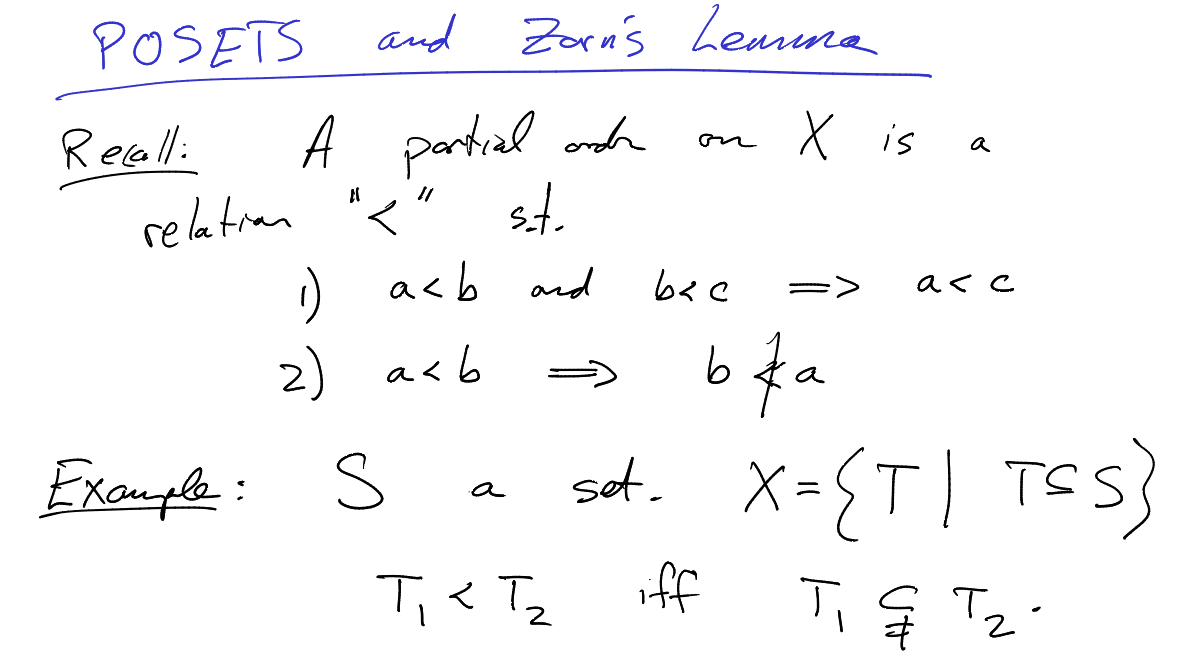 POSETS and Zorn's Lemma
Recall: A partial order on X is a
relation "<" s.t.
1) a<b and b<c => a<c
2) a<b => b≮a
Example: S a set. X={T | T⊆S}
T₁ < T₂ iff T₁ ⊊ T₂.